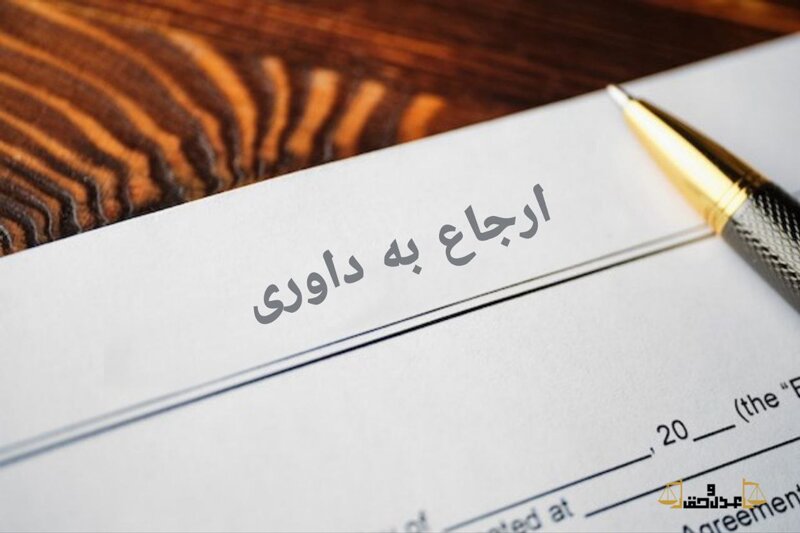 ارجاع به داوری
, 20___ (the "E
of
nted at
Agreement
عدل و حق